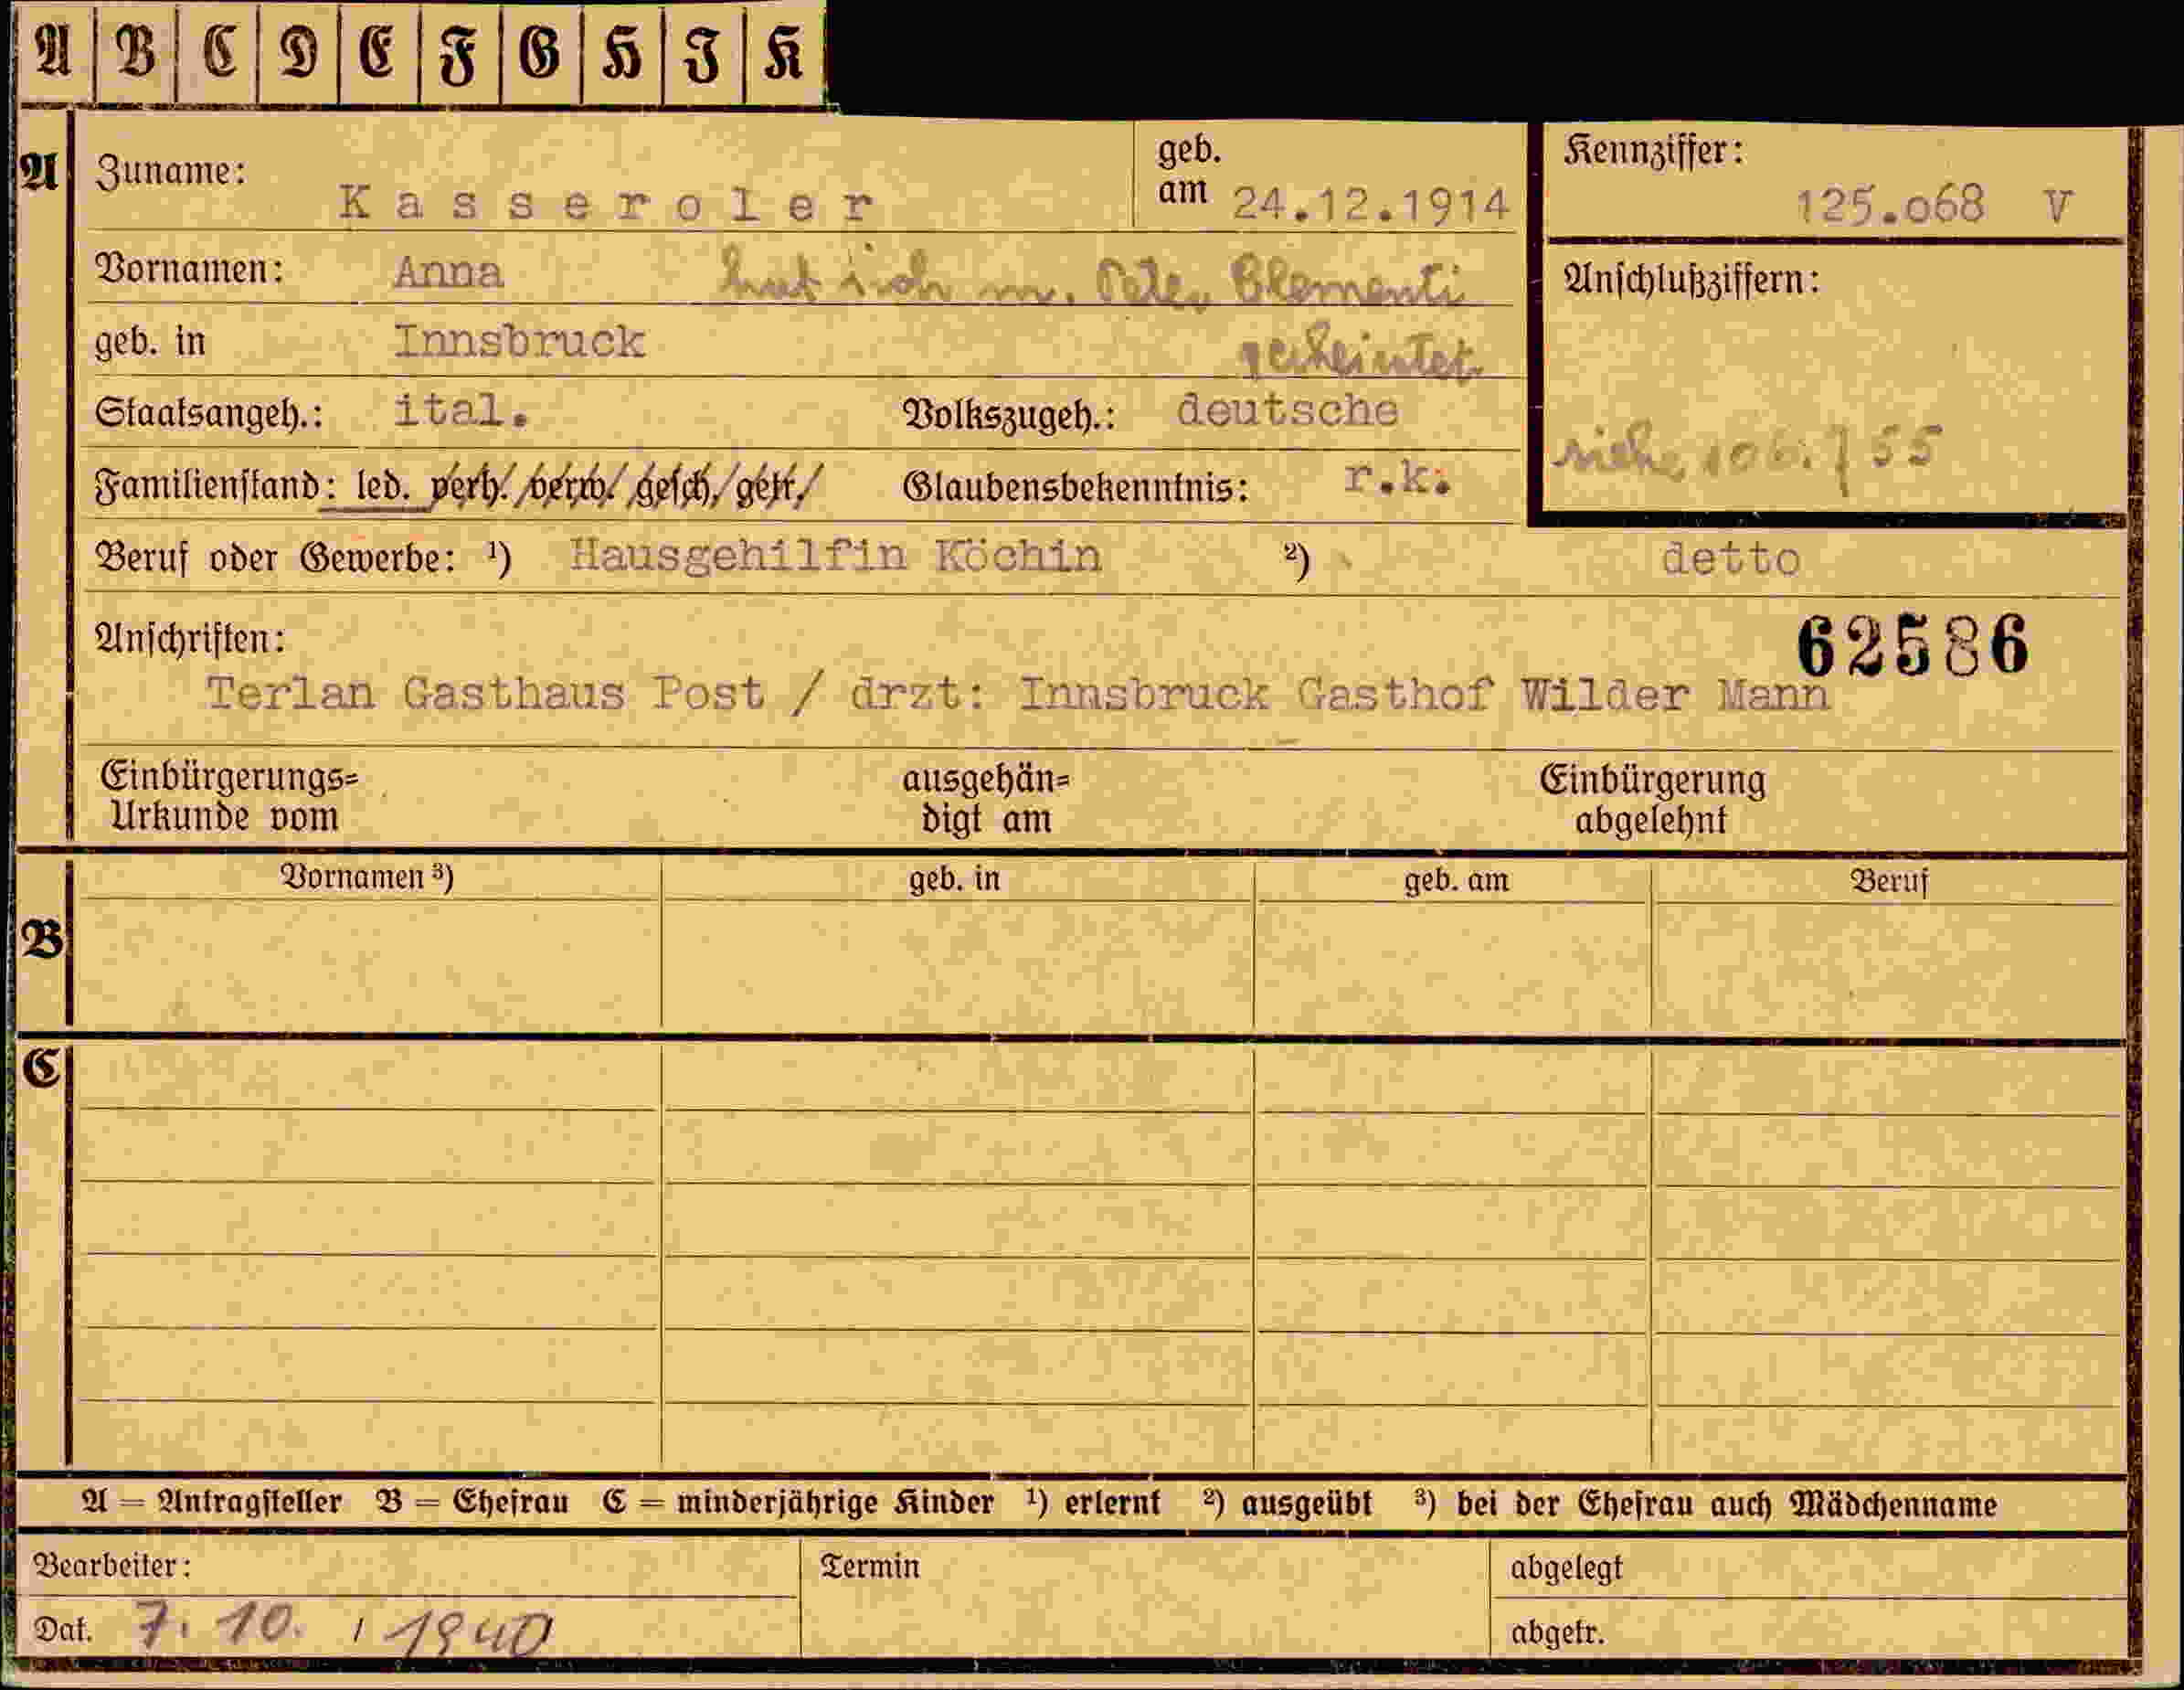 A B C D E F G H J K
A
Zuname: Kasseroler geb. am 24.12.1914
Kennziffer: 125.068 V
Vornamen: Anna hat sich m. Peter Clementi
geb. in Innsbruck geheiratet.
Anschlußziffern:
siehe 106.755
Staatsangeh.: ital. Volkszugeh.: deutsche
Familienstand: led. verh. verw. gesch. getr. Glaubensbekenntnis: r.k.
Beruf oder Gewerbe: ¹) Hausgehilfin Köchin ²) detto
Anschriften: 62586
Terlan Gasthaus Post / drzt: Innsbruck Gasthof Wilder Mann
Einbürgerungs=
Urkunde vom
ausgehän=
digt am
Einbürgerung
abgelehnt
B
Vornamen ³) geb. in geb. am Beruf
C
A = Antragsteller B = Ehefrau C = minderjährige Kinder ¹) erlernt ²) ausgeübt ³) bei der Ehefrau auch Mädchenname
Bearbeiter: Termin abgelegt
Dat. 7. 10. / 1940 abgetr.